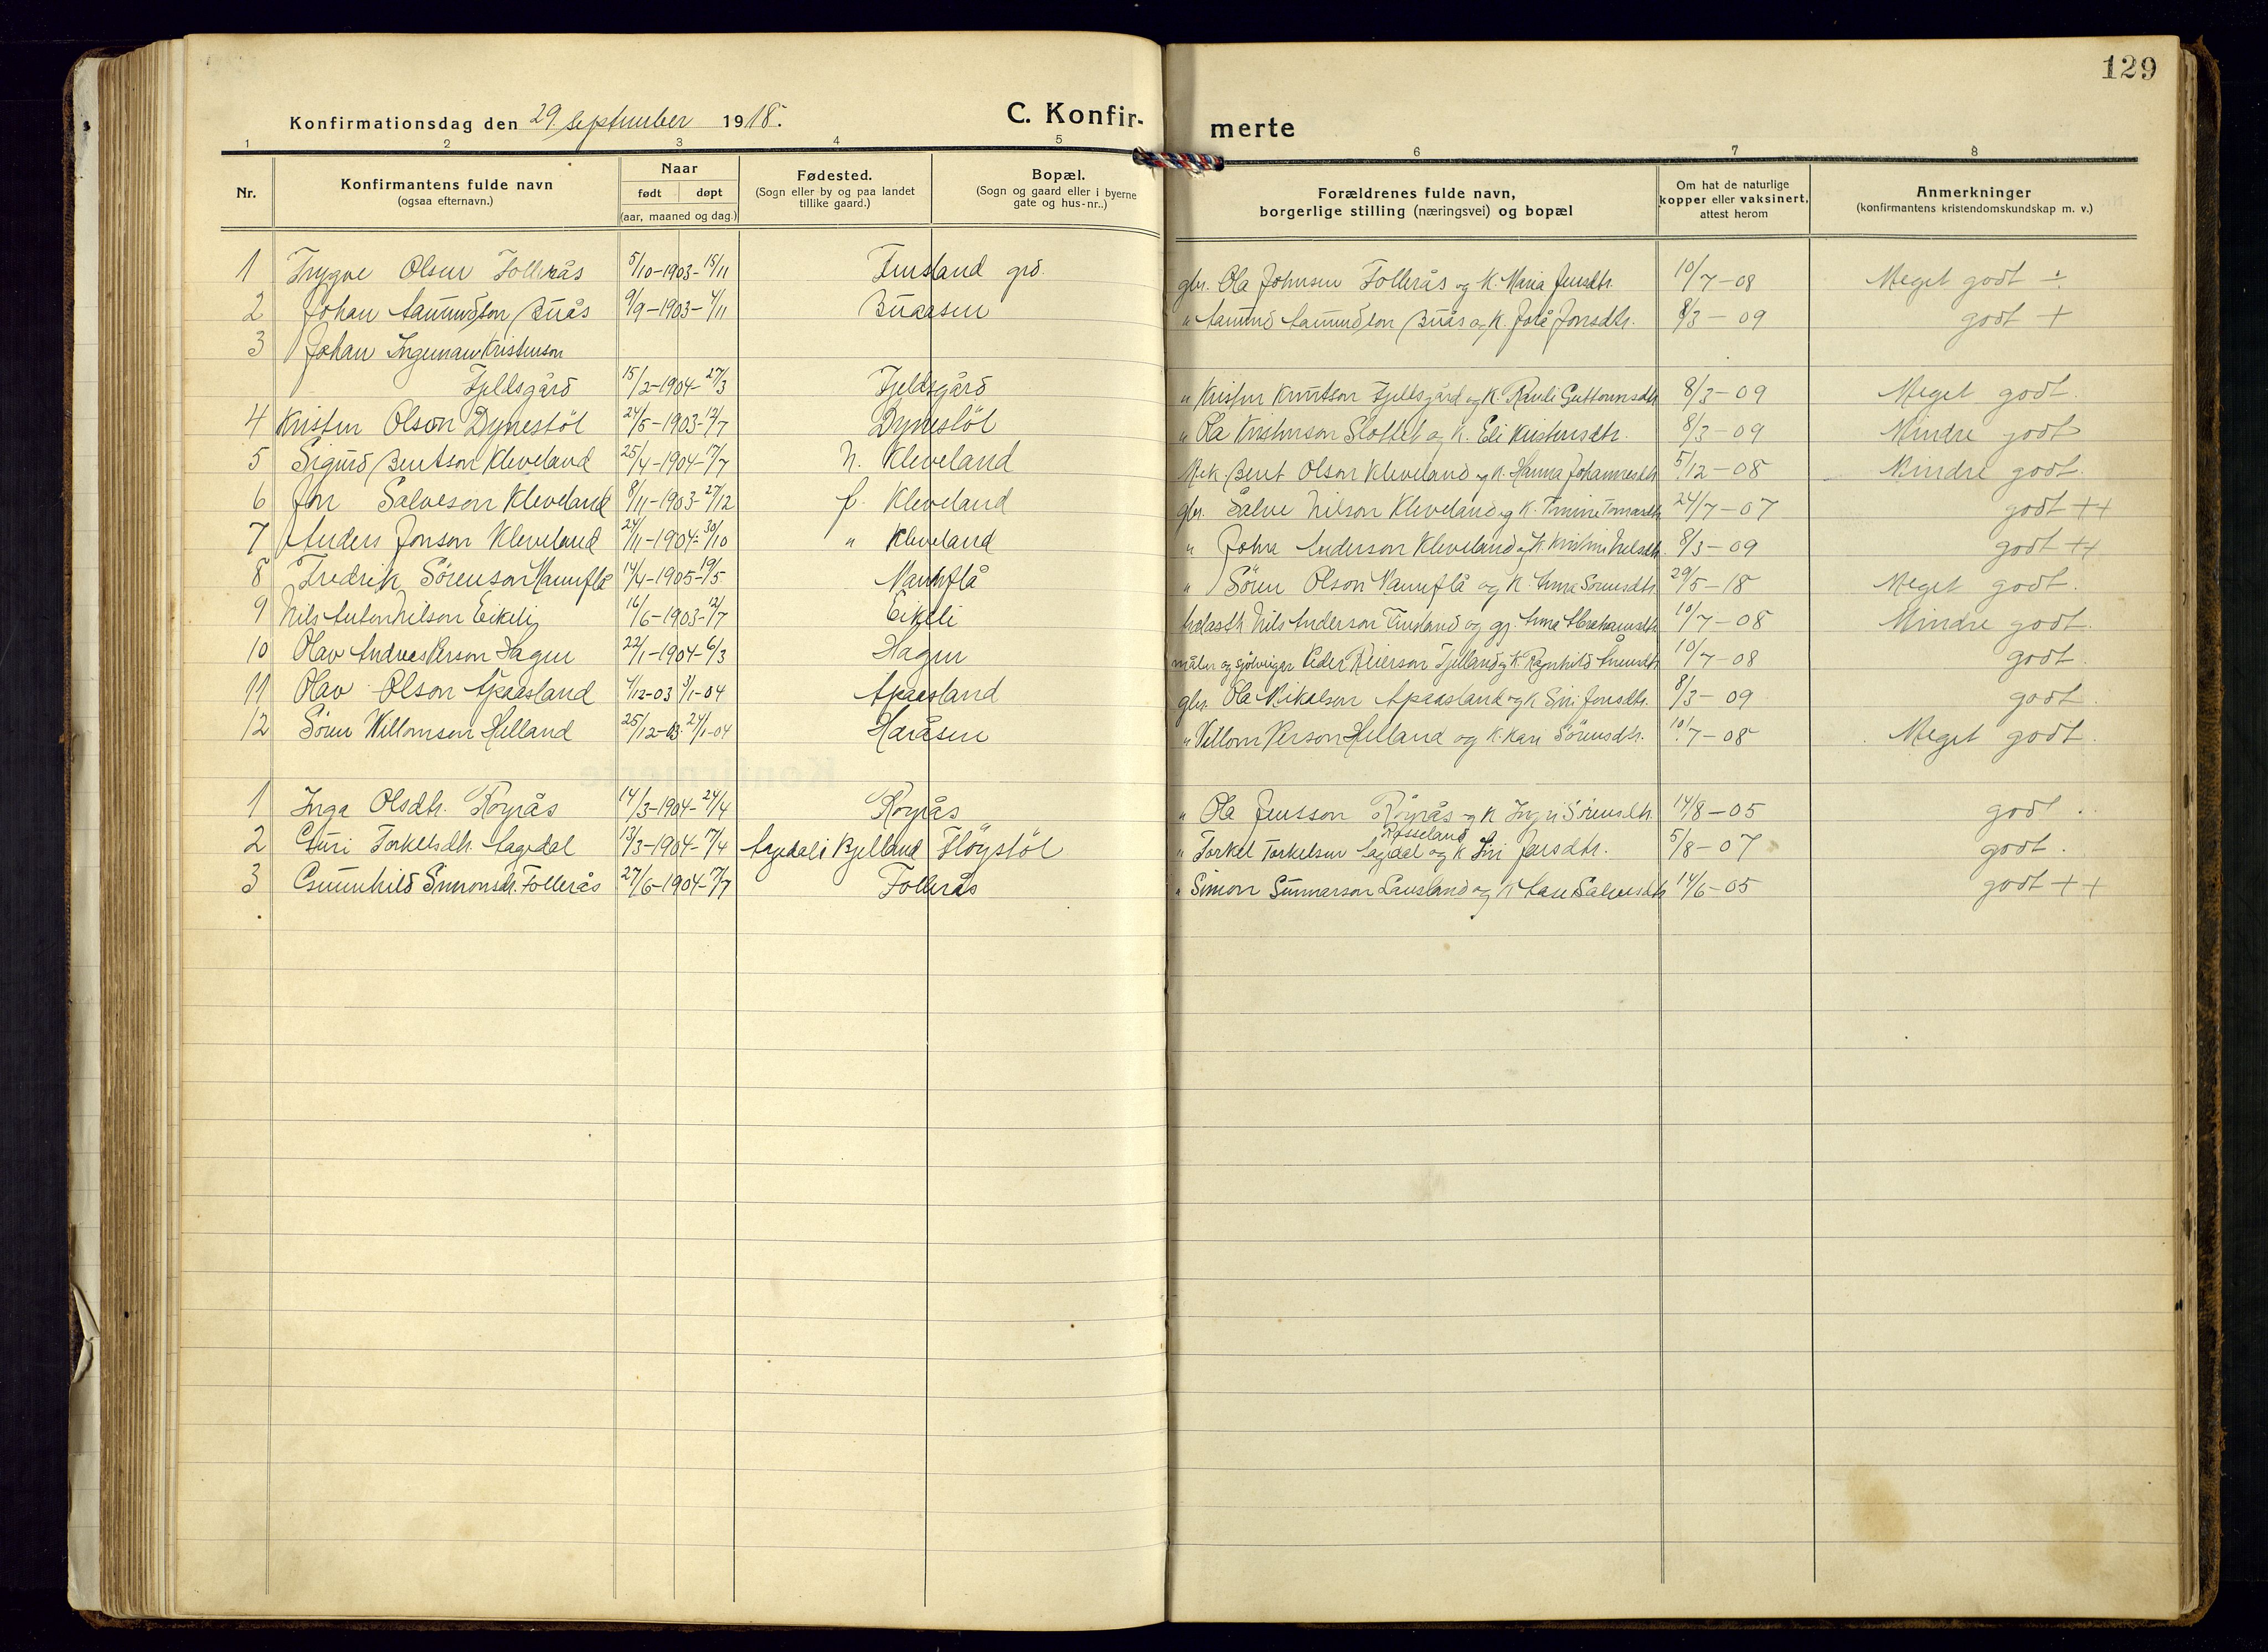 129
Konfirmationsdag den 29 september 1918.
C. Konfir- merte
1 2 3 4 5 6 7 8
Nr.
Konfirmantens fulde navn
(ogsaa efternavn.)
Naar
født døpt
(aar, maaned og dag.)
Fødested.
(Sogn eller by og paa landet
tillike gaard.)
Bopæl.
(Sogn og gaard eller i byerne
gate og hus-nr..)
Forældrenes fulde navn,
borgerlige stilling (næringsvei) og bopæl
Om hat de naturlige
kopper eller vaksinert,
attest herom
Anmerkninger
(konfirmantens kristendomskundskap m. v.)
1 Trygve Olsen Follerås 5/10-1903-15/11 Finsland grd. gbr. Ola Johnsen Follerås og K. Maria Jensdtr. 10/7-08 Meget godt ÷
2 Johan Aamundson Buås 9/9-1903-4/11 Buaasen " Aamund Aamundson Buås og K. Jonsdtr. 8/3-09 godt +
3 Johan Ingeman Kristenson
Fjeldsgård 15/2-1904-27/3 Fjeldsgård " Kristen Knutson Fjeldsgård og K. Guttormsdtr 8/3-09 Meget godt.
4 Kristen Olson Dynestöl 24/5-1903-12/7 Dynestöl " Ola Kristenson Slottet og K. Eli Kristensdtr. 8/3-09 Mindre godt
5 Sigurd Bentson Kleveland 25/4-1904-17/7 N. Kleveland Mek. Bent Olson Kleveland og K. Hanna Johannesdtr 5/12-08 Mindre godt.
6 Jon Salveson Kleveland 8/11-1903-27/12 f. Kleveland gbr. Salve Nilson Kleveland og K. Tomine Tomasdtr 24/7-07 godt ++
7 Anders Jonson Kleveland 24/11-1904-30/10 " Kleveland " John Anderson Kleveland og K. Kristine Nelsdtr. 8/3-09 godt ++
8 Fredrik Sörenson Mannflå 14/4-1905-19/5 Mannflå " Sören Olson Mannflå og K. Anna Sörensdtr. 29/5-18 Meget godt.
9 Nils Anton Nilson Eikeli 16/6-1903-12/7 Eikeli Nils Anderson Finsland og gj. Anna Abrahamsdtr 10/7-08 Mindre godt.
10 Olav Andreas Person Hagen 22/1-1904-6/3 Hagen måler og sjölveigar Peder Reierson Fjelland og K. Ragnhild 10/7-08 godt.
11 Olav Olson Apaasland 4/12-03 3/1-04 Apaasland gbr. Ola Mikalson Apaasland og K. Siri Jonsdtr. 8/3-09 godt.
12 Sören Willomson Helland 25/12-03-24/1-04 Haråsen " Villom Person Helland og K. Kari Sörensdtr. 10/7-08 Meget godt.
1 Inga Olsdtr. Röyrås 14/3-1904-24/4 Röyrås " Ola Jensson Röyrås og K. Ingri Sörensdtr. 14/8-05 godt.
Røsseland
2 Guri Torkelsdtr. Aagedal 13/3-1904-17/4 Aagedal i Bjelland Flöystöl " Torkel Torkelsen Aagedal og K. Siri Jonsdtr. 5/8-07 godt.
3 Gunnhild Simonsdr. Follerås 27/6-1904-17/7 Follerås " Simon Gunnarson Lausland og K. Aase Salvesdtr 14/6-05 godt ++